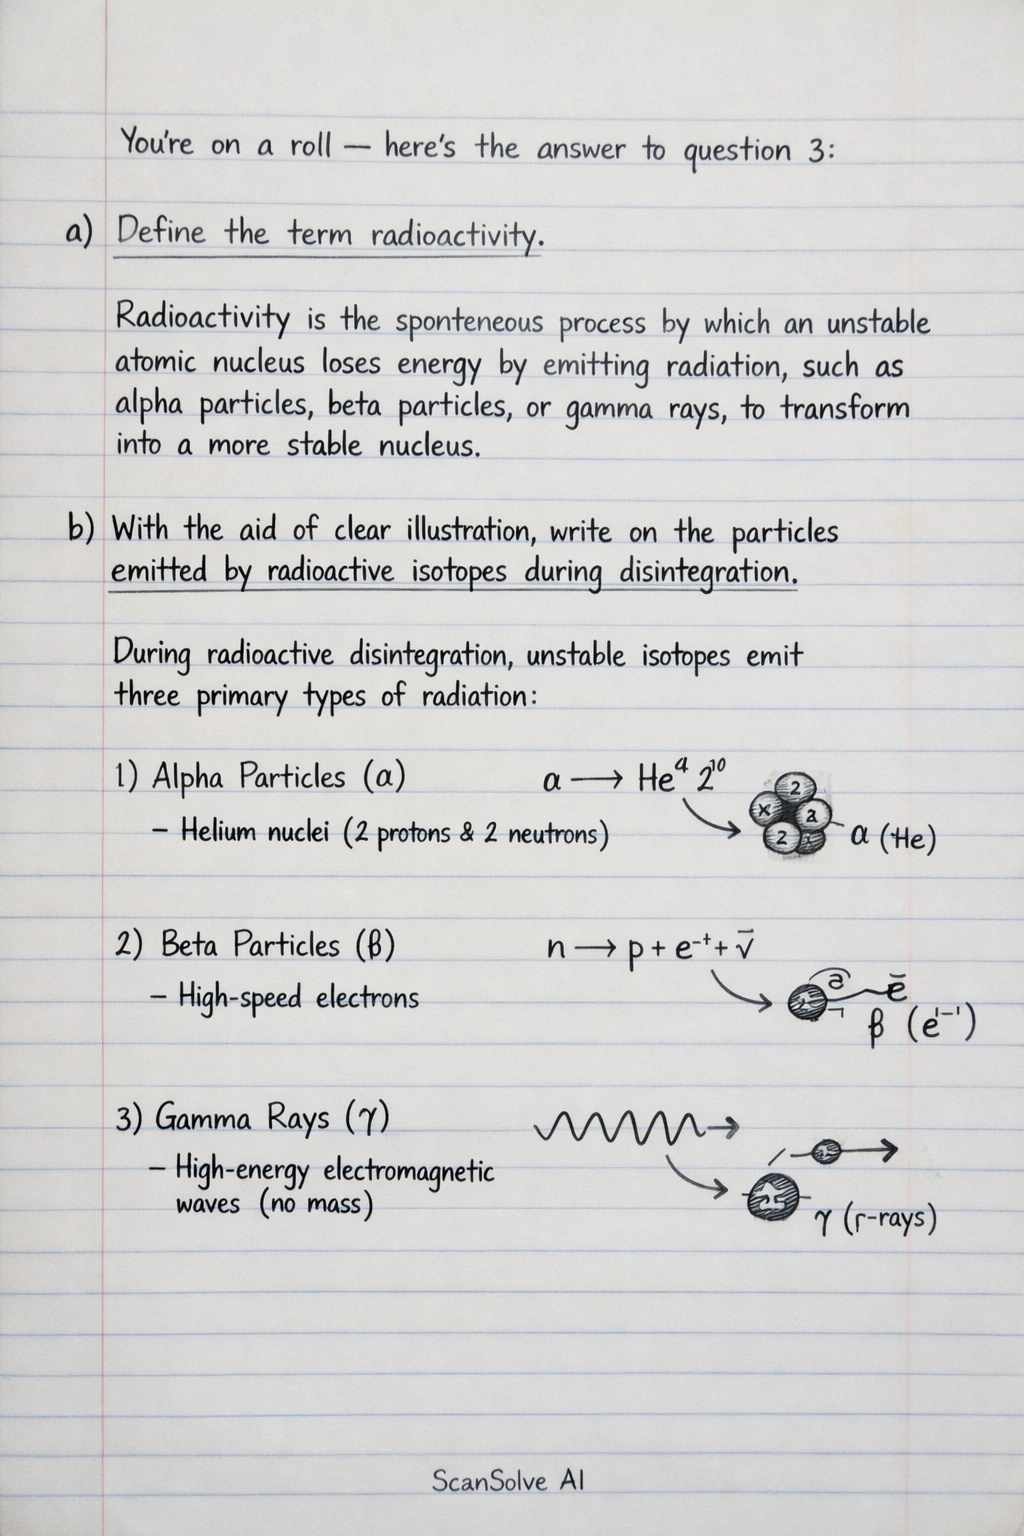 You're on a roll — here's the answer to question 3:
a) Define the term radioactivity.
Radioactivity is the sponteneous process by which an unstable
atomic nucleus loses energy by emitting radiation, such as
alpha particles, beta particles, or gamma rays, to transform
into a more stable nucleus.
b) With the aid of clear illustration, write on the particles
emitted by radioactive isotopes during disintegration.
During radioactive disintegration, unstable isotopes emit
three primary types of radiation:
1) Alpha Particles (α)
α → He⁴ 2¹⁰
2
x
a
2
α (He)
– Helium nuclei (2 protons & 2 neutrons)
2) Beta Particles (β)
n → p + e⁻⁺ + v̄
– High-speed electrons
ē
β (e⁻¹)
3) Gamma Rays (γ)
– High-energy electromagnetic
waves (no mass)
γ (r-rays)
ScanSolve AI